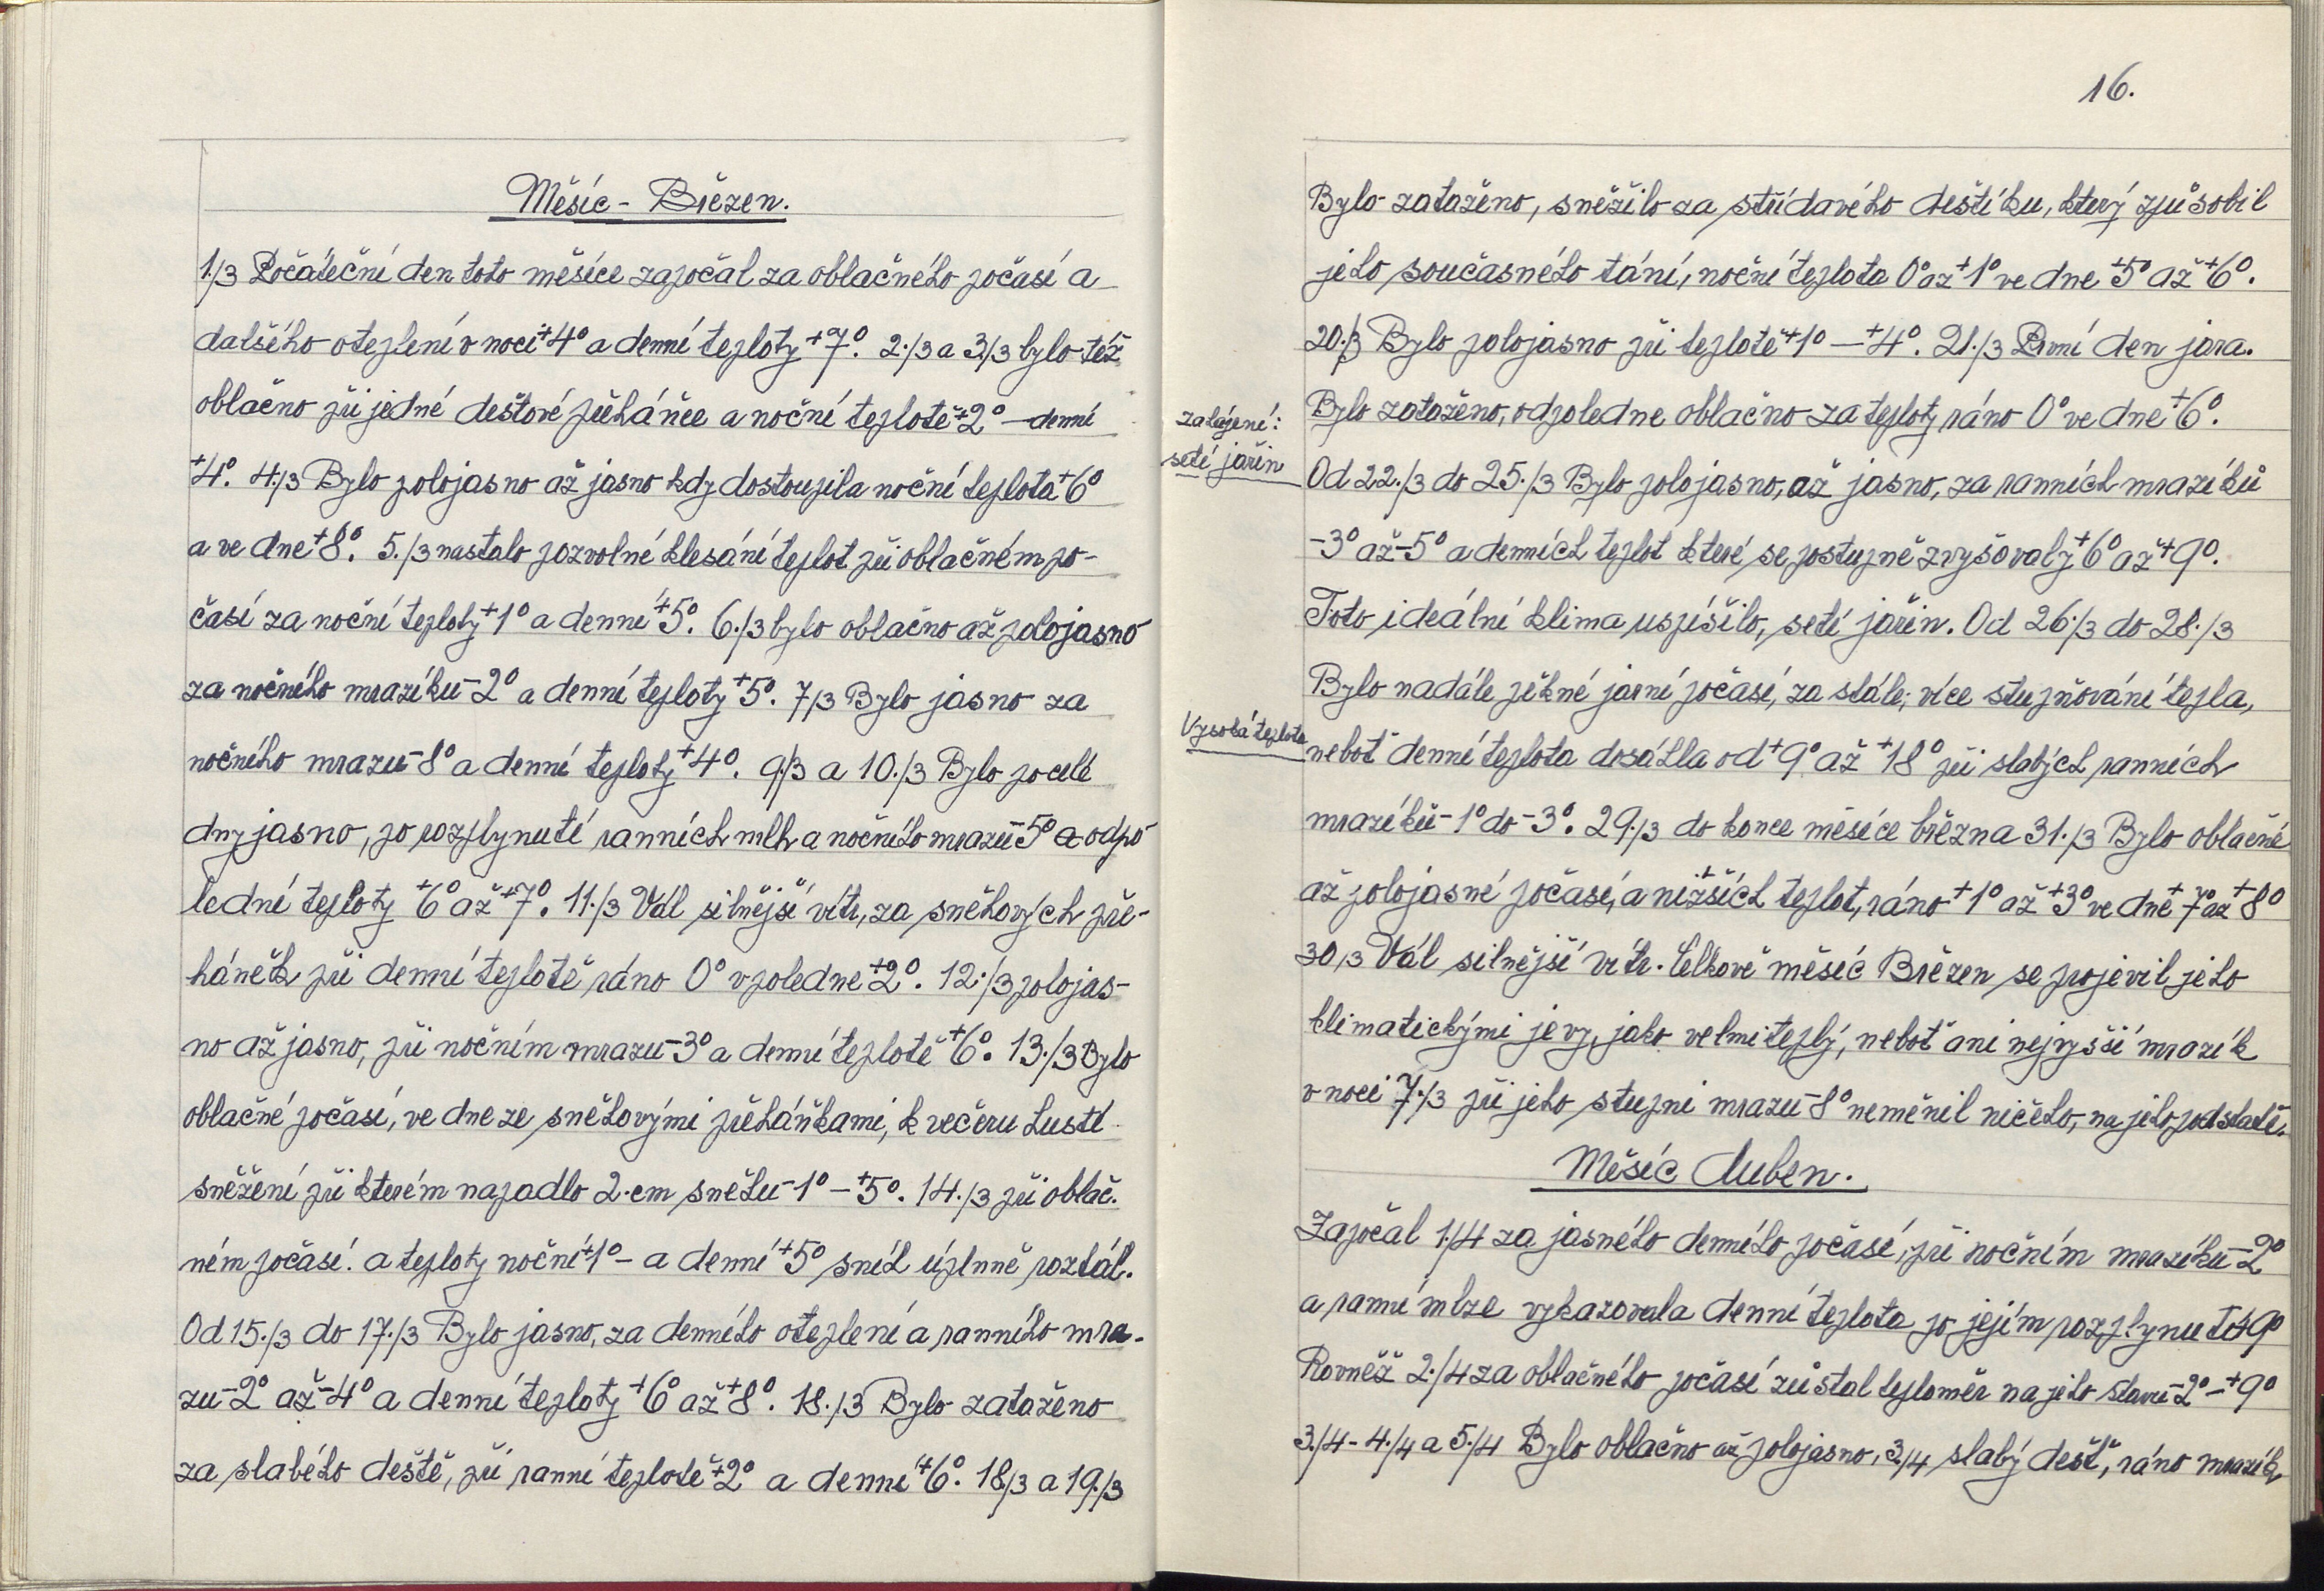 Měsíc - Březen.
1./3 Počáteční den toto měsíce započal za oblačného počasí a
dalšího oteplení v noci +4° a denní teploty +7°. 2./3 a 3./3 bylo též
oblačno při jedné dešťové přeháňce a noční teplotě +2° - denní
+4°. 4./3 Bylo polojasno až jasno kdy dostoupila noční teplota +6°
a ve dne +8°. 5./3 nastalo pozvolné klesání teplot při oblačném po-
časí za noční teploty +1° a denní +5°. 6./3 bylo oblačno až polojasno
za nočního mrazíku -2° a denní teploty +5°. 7/3 Bylo jasno za
nočního mrazu -8° a denní teploty +4°. 9/3 a 10./3 Bylo po celé
dny jasno, po rozplynutí ranních mlh a nočního mrazu -5° a odpo
lední teploty +6° až +7°. 11./3 Vál silnější vítr, za sněhových pře-
háněk při denní teplotě ráno 0° v poledne +2°. 12./3 polojas-
no až jasno, při nočním mrazu -3° a denní teplotě +6°. 13./3 Bylo
oblačné počasí, ve dne ze sněhovými přeháňkami, k večeru husté
sněžení při kterém napadlo 2.cm sněhu -1° - +5°. 14./3 při oblač.
ném počasí. a teploty noční +1° - a denní +5° sníh úplnně roztál.
Od 15./3 do 17./3 Bylo jasno, za denního oteplení a ranního mra-
zu -2° až -4° a denní teploty +6° až +8°. 18./3 Bylo zataženo
za slabého deště, při ranní teplotě +2° a denní +6°. 18/3 a 19./3
16.
Bylo zataženo, sněžilo za střídavého deštíku, který způsobil
jeho současného tání, noční teplota 0° až +1° ve dne +5° až +6°.
20./3 Bylo polojasno při teplotě +1° - +4°. 21./3 První den jara.
Bylo zataženo, odpoledne oblačno za teploty ráno 0° ve dne +6°.
zahájení:
setí jařin
Od 22./3 do 25./3 Bylo polojasno, až jasno, za ranních mrazíků
-3° až -5° a denních teplot které se postupně zvyšovaly +6° až +9°.
Toto ideální klima uspíšilo, setí jařin. Od 26./3 do 28./3
Bylo nadále pěkné jarní počasí, za stále, více stupňování tepla,
Vysoká teplota
neboť denní teplota dosáhla od +9° až +18° při slabých ranních
mrazíků -1° do -3°. 29./3 do konce měsíce března 31./3 Bylo oblačné
až polojasné počasí, a nižších teplot, ráno +1° až +3° ve dne +7° až +8°
30/3 Vál silnější vítr. Celkově měsíc Březen se projevil jeho
klimatickými jevy, jako velmi teplý, neboť ani nejvyšší mrazík
v noci 7./3 při jeho stupni mrazu -8° neměnil ničeho, na jeho podstatě.
Měsíc duben.
Započal 1./4 za jasného denního počasí, při nočním mrazíku -2°
a ranní mlze vykazovala denní teplota po jejím rozplynutí +9°
Rovněž 2./4 za oblačného počasí zůstal teploměr na jeho stavu -2° - +9°
3./4 - 4./4 a 5./4 Bylo oblačno až polojasno, 3/4 slabý déšť, ráno mrazík